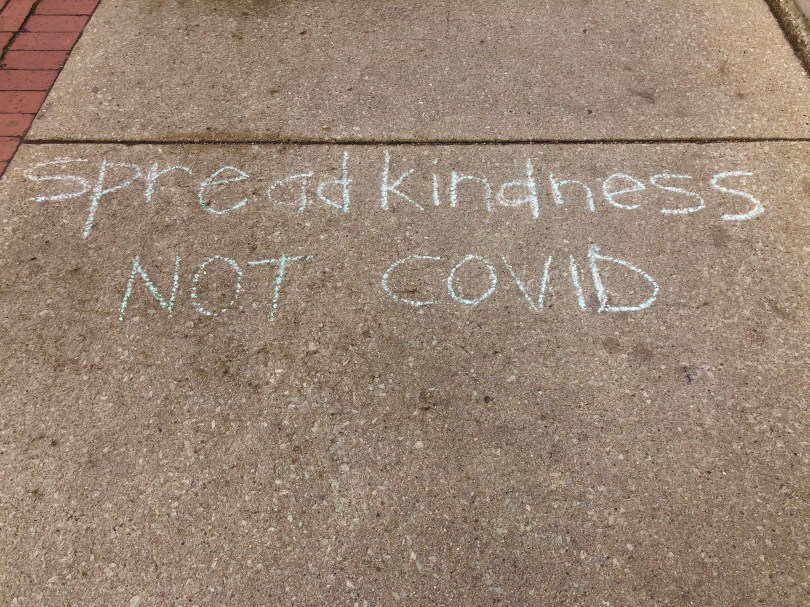 spread kindness
NOT COVID